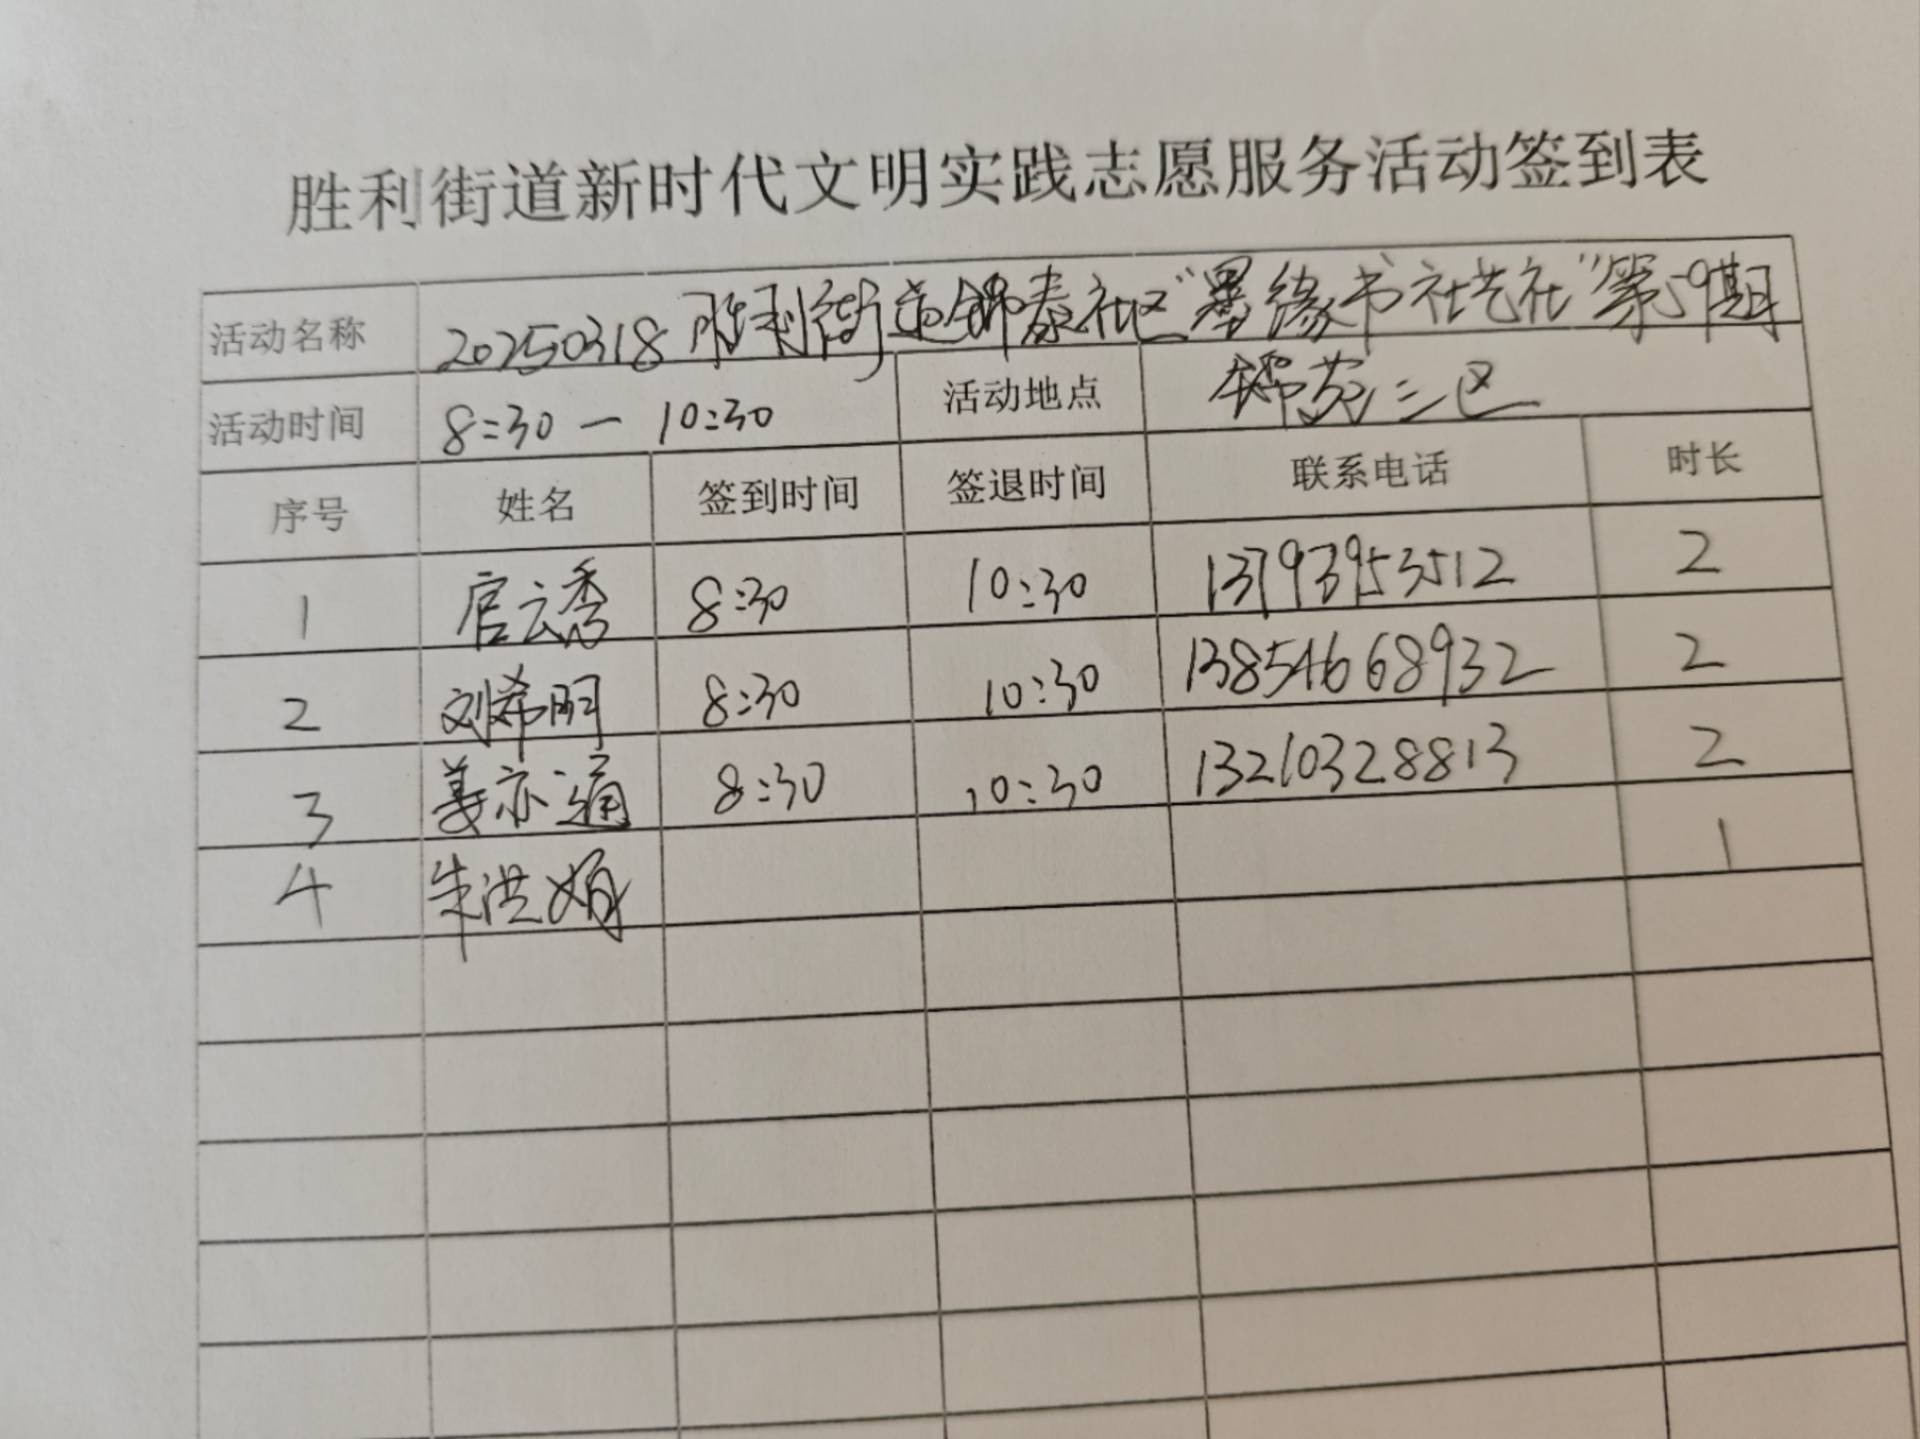 胜利街道新时代文明实践志愿服务活动签到表
活动名称 20250318胜利街道锦泰社区“墨缘书社艺社”第59期
活动时间 8:30—10:30 活动地点 锦苑三区
序号 姓名 签到时间 签退时间 联系电话 时长
1 官云秀 8:30 10:30 13793953512 2
2 刘希明 8:30 10:30 13854668932 2
3 姜亦通 8:30 10:30 13210328813 2
4 朱洪娟 1